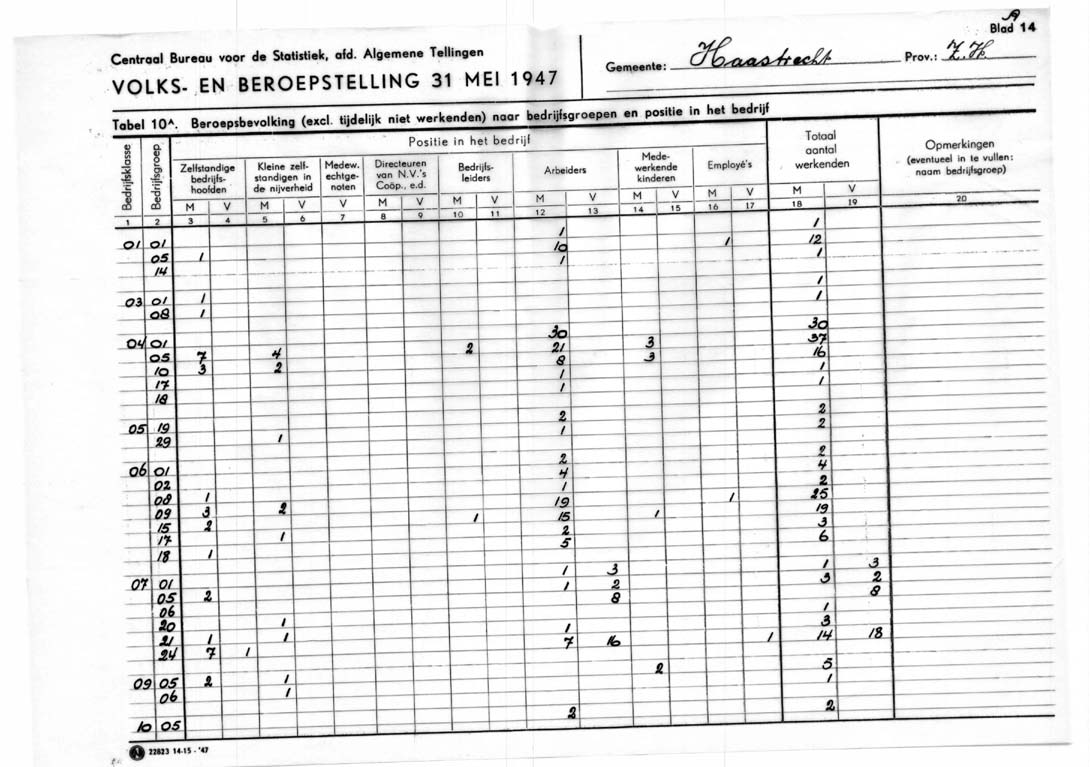 A
Blad 14
Centraal Bureau voor de Statistiek, afd. Algemene Tellingen
VOLKS- EN BEROEPSTELLING 31 MEI 1947
Gemeente: Haastrecht Prov.: Z.H.
Tabel 10A. Beroepsbevolking (excl. tijdelijk niet werkenden) naar bedrijfsgroepen en positie in het bedrijf
Bedrijfsklasse
Bedrijfsgroep
Positie in het bedrijf
Zelfstandige bedrijfs- hoofden
Kleine zelf- standigen in de nijverheid
Medew. echtge- noten
Directeuren van N.V.'s Coöp., e.d.
Bedrijfs- leiders
Arbeiders
Mede- werkende kinderen
Employé's
Totaal aantal werkenden
Opmerkingen (eventueel in te vullen: naam bedrijfsgroep)
M V M V V M V M V M V M V M V M V
1 2 3 4 5 6 7 8 9 10 11 12 13 14 15 16 17 18 19 20
01 01 1 1
05 1 10 1 12
14 1 1
03 01 1 1
08 1 1
04 01 30 30
05 7 4 2 21 3 37
10 3 2 8 3 16
17 1 1
18 1 1
05 19 2 2
29 1 1 2
06 01 2 2
02 4 4
08 1 1 2
09 3 2 19 1 25
15 2 1 15 1 19
17 1 2 3
18 1 5 6
07 01 1 3 1 3
05 2 1 2 3 2
06 8 8
20 1 1
21 1 1 1 3
24 7 1 7 16 1 14 18
09 05 2 1 2 5
06 1 1
10 05 2 2
22823 14-15-'47